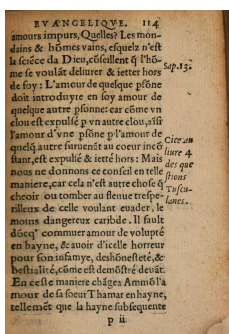 EVANGELIQVE. 114
amours impurs, Quelles? Les mon-
dains & hõmes vains, esquelz n'est
la sciẽce da Dieu, cõseillent q̃ l'hõ-
me se voulãt deliurer & ietter hors
de soy: L'amour de quelque psõne
doit introduyre en soy amour de
quelque autre psonne: car cõme vn
clou est expulsé p vn autre clou, aĩsi
l'amour d'vne psõne p l'amour de
quelq̃ autre suruenãt au coeur incõ
stant, est expulsé & ietté hors: Mais
nous ne donnons ce conseil en telle
maniere, car cela n'est autre chose q̃
cheoir ou tomber au fleuue trespe-
rilleux de celle voulant euader, le
moins dangereux caribde. Il fault
dõcq̃ commuer amour de volupté
en hayne, & auoir d'icelle horreur
pour son infamye, deshõnesteté, &
bestialité, cõme est demõstré deuãt.
En ceste maniere chãgea Ammõ l'a
mour de sa soeur Thamar en hayne,
tellemẽt que la hayne subsequente
p ii
Sap.13.
Cice au
liure 4
des que
stions
Tuscu-
lanes.